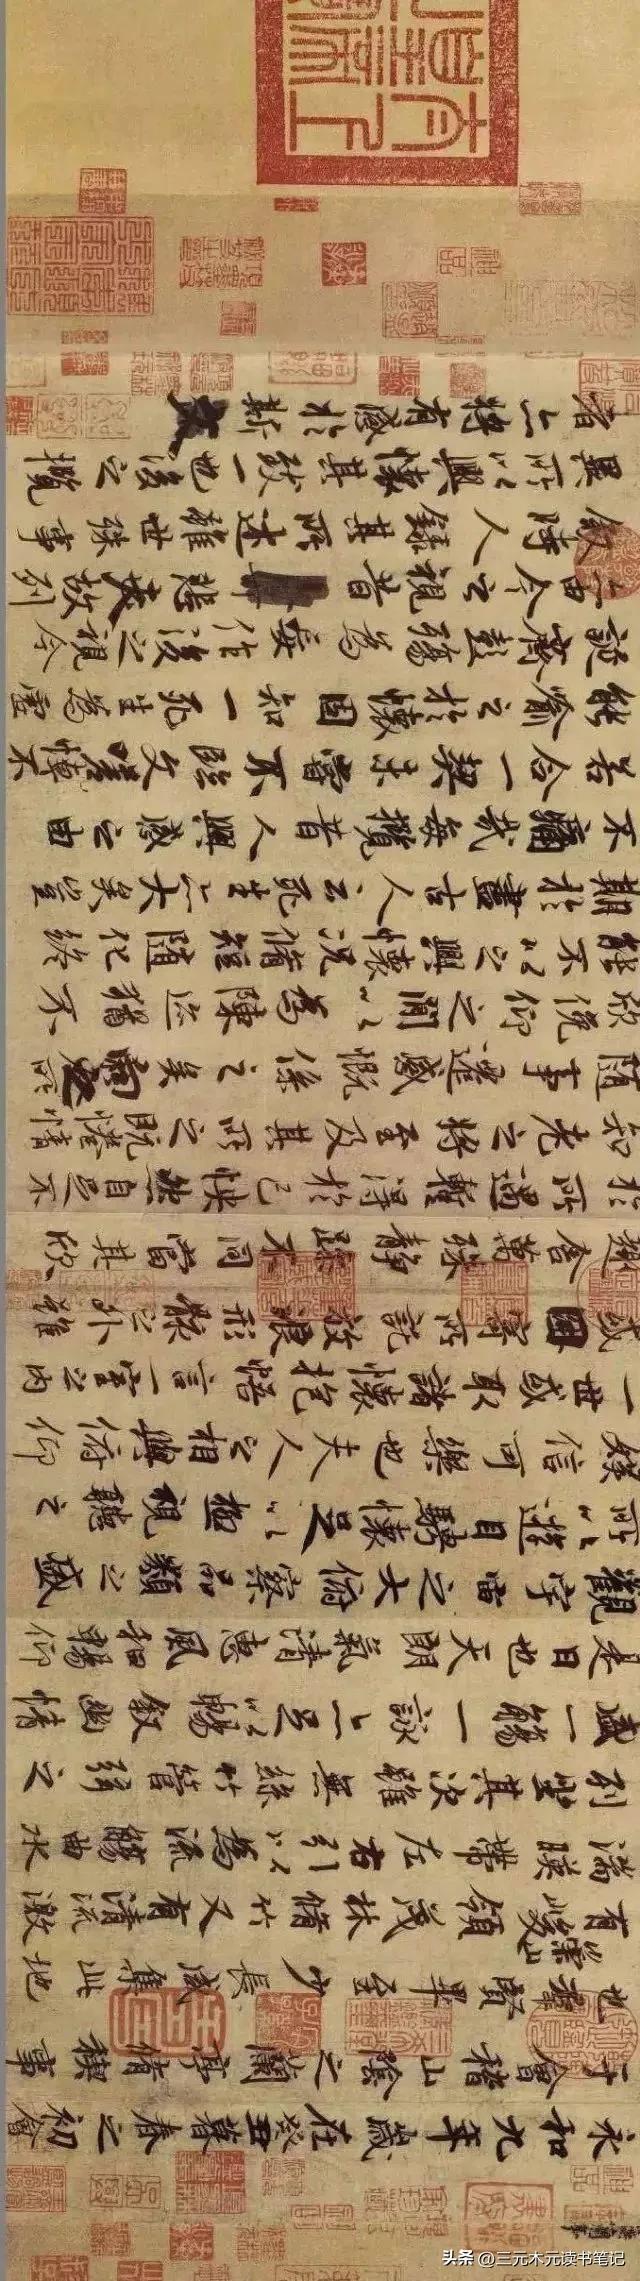 永和九年歲在癸丑暮春之初會
于會稽山陰之蘭亭脩禊事
也羣賢畢至少長咸集此地
有崇山峻領茂林脩竹又有清流激
湍暎帶左右引以為流觴曲水
列坐其次雖無絲竹管弦之
盛一觴一詠亦足以暢敘幽情
是日也天朗氣清惠風和暢仰
觀宇宙之大俯察品類之盛
所以遊目騁懷足以極視聽之
娛信可樂也夫人之相與俯仰
一世或取諸懷抱悟言一室之內
或因寄所託放浪形骸之外雖
趣舍萬殊靜躁不同當其欣
於所遇蹔得於己快然自足不
知老之將至及其所之既惓情
隨事遷感慨係之矣向之所
欣俛仰之閒以為陳迹猶不
能不以之興懷況脩短隨化終
期於盡古人云死生亦大矣豈
不痛哉每攬昔人興感之由
若合一契未嘗不臨文嗟悼不
能喻之於懷固知一死生為虛
誕齊彭殤為妄作後之視今
亦由今之視昔悲夫故列
敘時人錄其所述雖世殊事
異所以興懷其致一也後之攬
者亦將有感於斯文
头条 @三元木元读书笔记